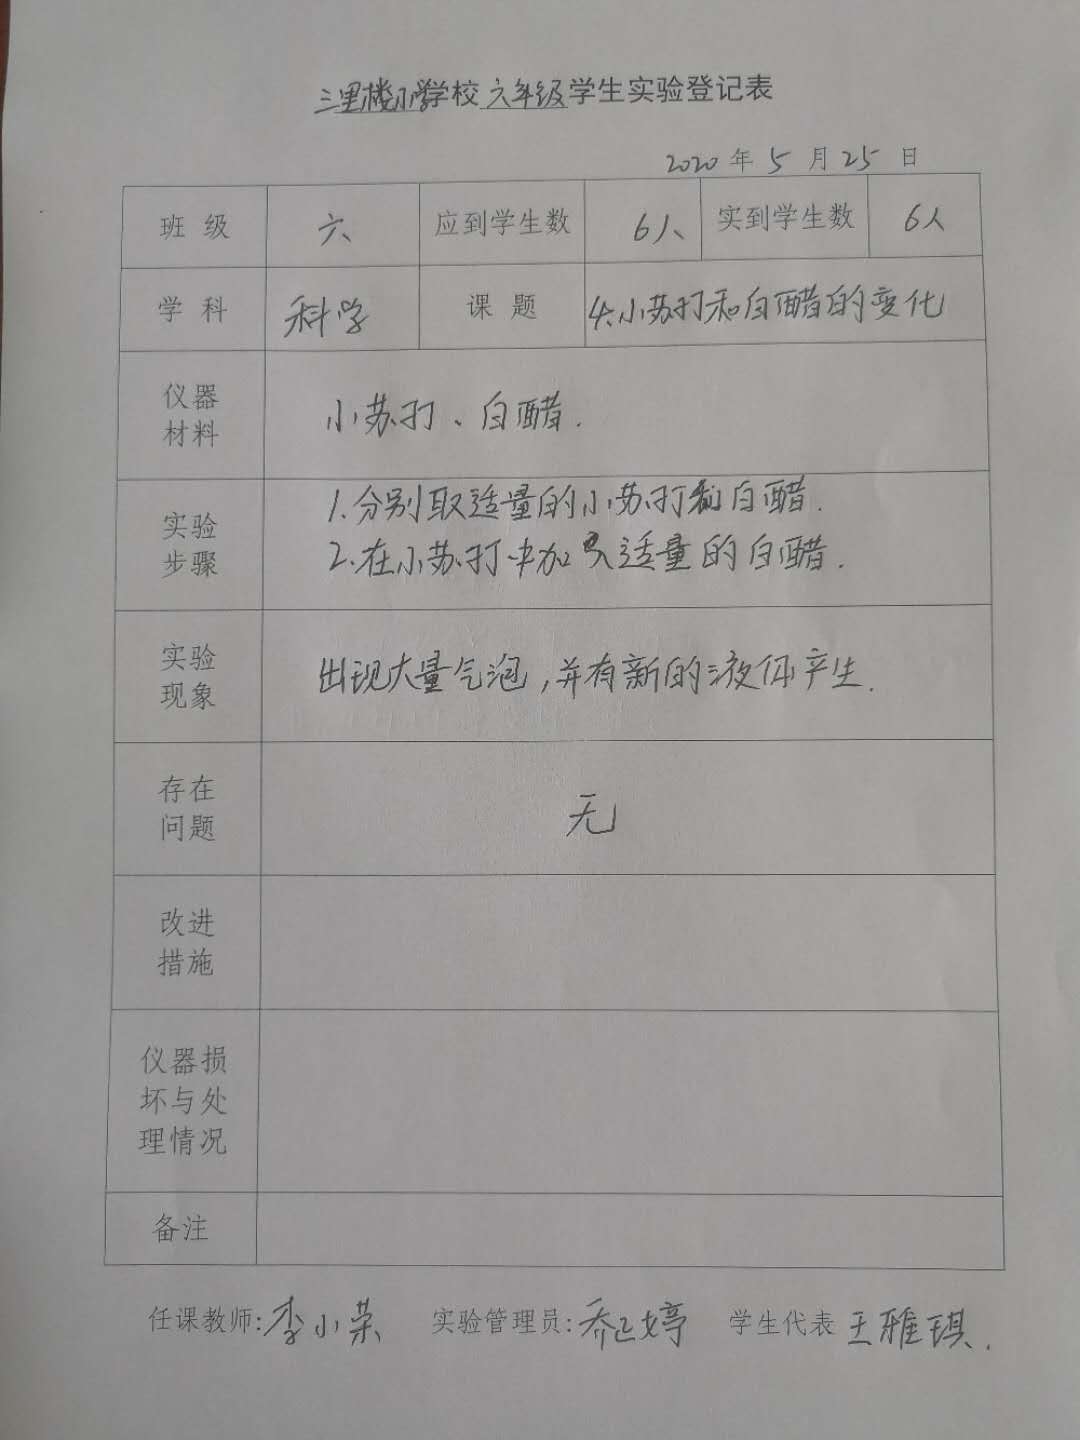 三里楼小学学校六年级学生实验登记表
2020 年 5 月 25 日
班 级 六 应到学生数 6人 实到学生数 6人
学 科 科学 课 题 4.小苏打和白醋的变化
仪器
材料
小苏打、白醋.
实验
步骤
1.分别取适量的小苏打和白醋.
2.在小苏打中加入适量的白醋.
实验
现象
出现大量气泡,并有新的液体产生.
存在
问题
无
改进
措施
仪器损
坏与处
理情况
备注
任课教师:李小荣 实验管理员:乔正婷 学生代表 王雅琪.